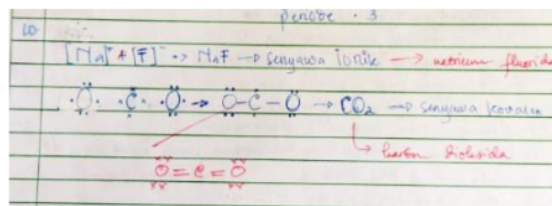 periode . 3
10.
[Na]⁺ + [F]⁻ -> NaF -> senyawa ionik -> natrium fluorida
O C O -> O - C - O -> CO₂ -> senyawa kovalen
karbon dioksida
O = C = O